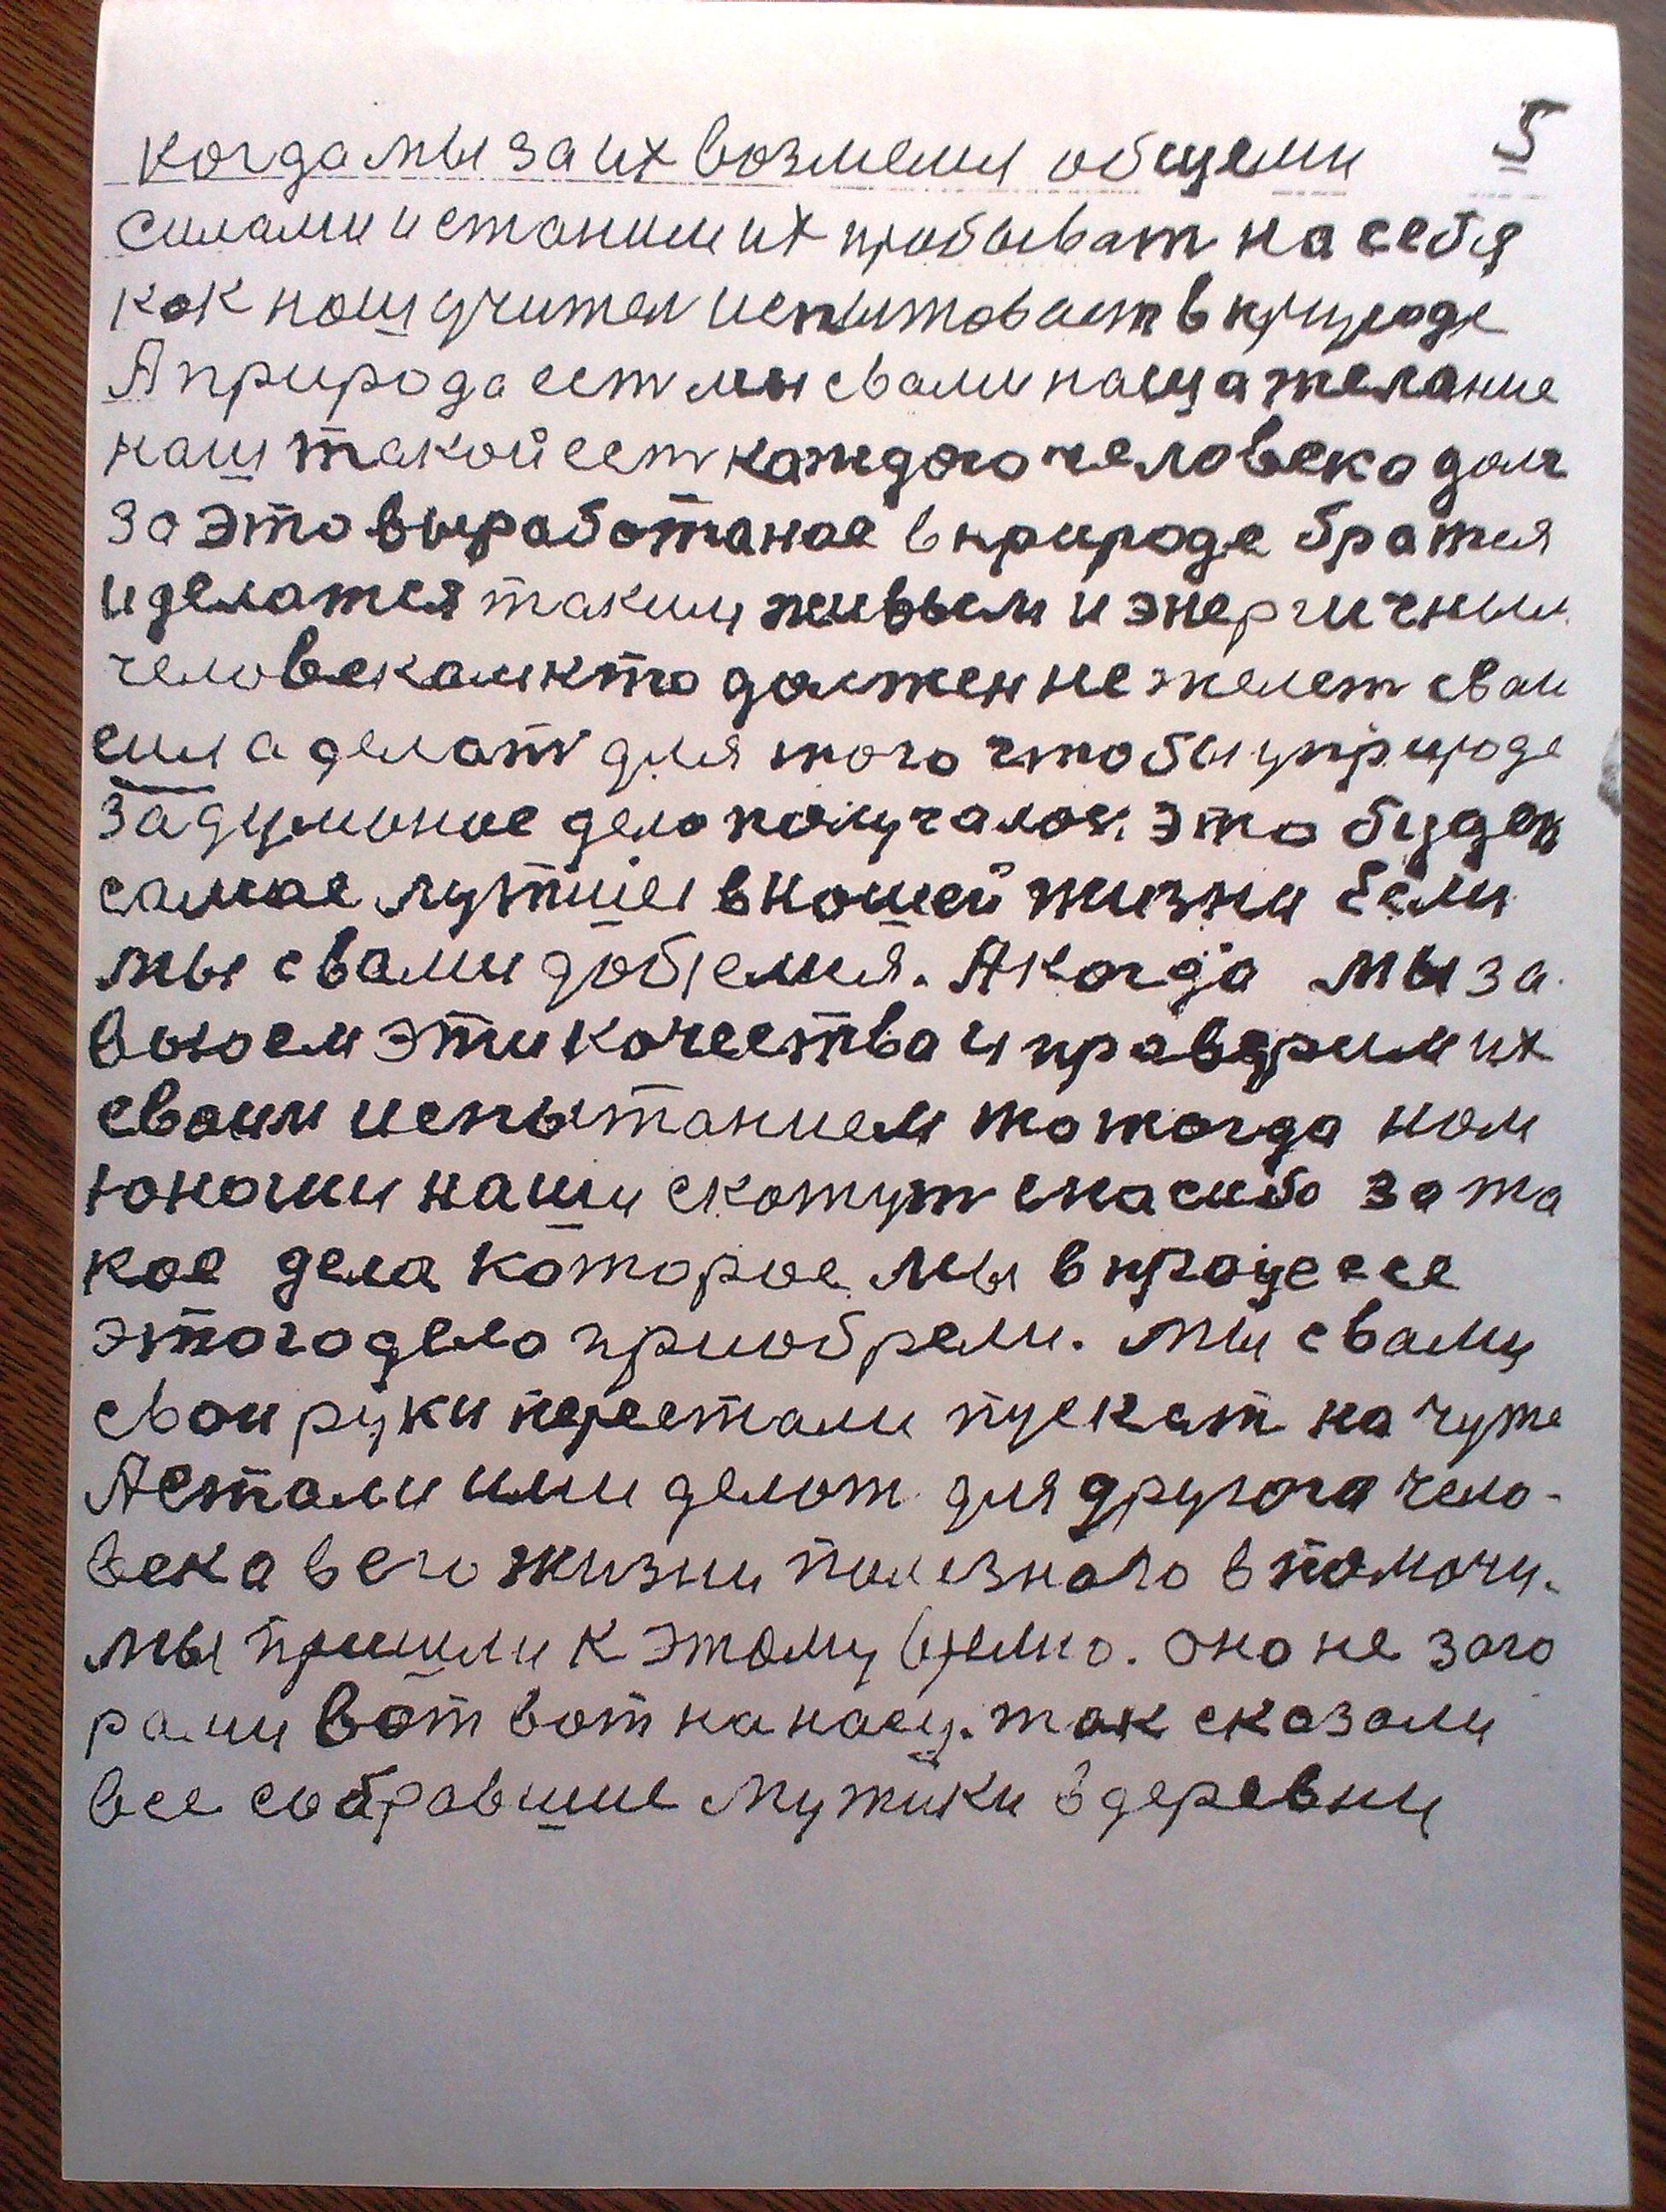 5
когда мы за их возмемся общеми
силами и станим их пробыват на себя
как наш учител испытовает в природе
А природа ест мы свами наща желание
наш такой ест каждого человека долг
за это выработаное в природе братся
и делатся таким живым и энергичным
человекам кто должен не желет сваи
сил а делат для того чтобы у природе
задуманое дело получалос. это будет
самае лутшее в нашей жизни если
мы свами добемся. А когда мы за
воюем эти качества и праверим их
сваим испытанием то тогда нам
юноши наши скажут спасибо за та
кое дела которое мы в процессе
этого дело приобрели. мы свами
свои руки перестали пускат на чуже
А стали ими делат для другога чело-
века в его жизни полезного в помочи.
мы пришли к этому время. оно не заго
рами вот вот на насу. так сказали
все собравшие мужики в деревни